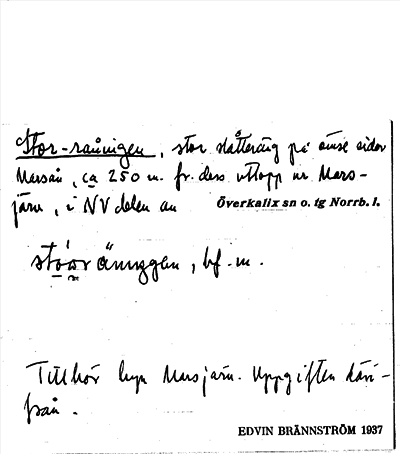 Stor-raningen, stor slåtteräng på ömse sidor
Marsån, ca 250 m. fr. dess utlopp ur Mars-
järn, i NV delen av Överkalix sn o. tg Norrb. l.
stóor äniggen, bf. m.
Tillhör byn Marsjärn. Uppgiften häri-
från.
EDVIN BRÄNNSTRÖM 1937